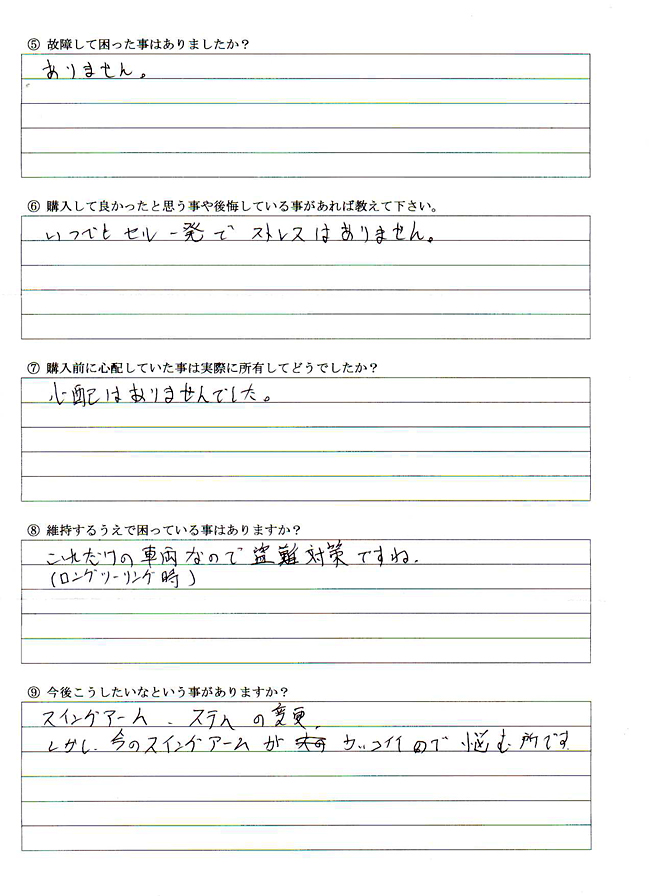 ⑤ 故障して困った事はありましたか？
ありません。
⑥ 購入して良かったと思う事や後悔している事があれば教えて下さい。
いつでも セル一発で ストレスはありません。
⑦ 購入前に心配していた事は実際に所有してどうでしたか？
心配はありませんでした。
⑧ 維持するうえで困っている事はありますか？
これだけの車両なので盗難対策ですね.
(ロングツーリング時)
⑨ 今後こうしたいなという事がありますか？
スイングアーム、ステムの変更.
しかし、今のスイングアームが カッコイイので 悩む所です